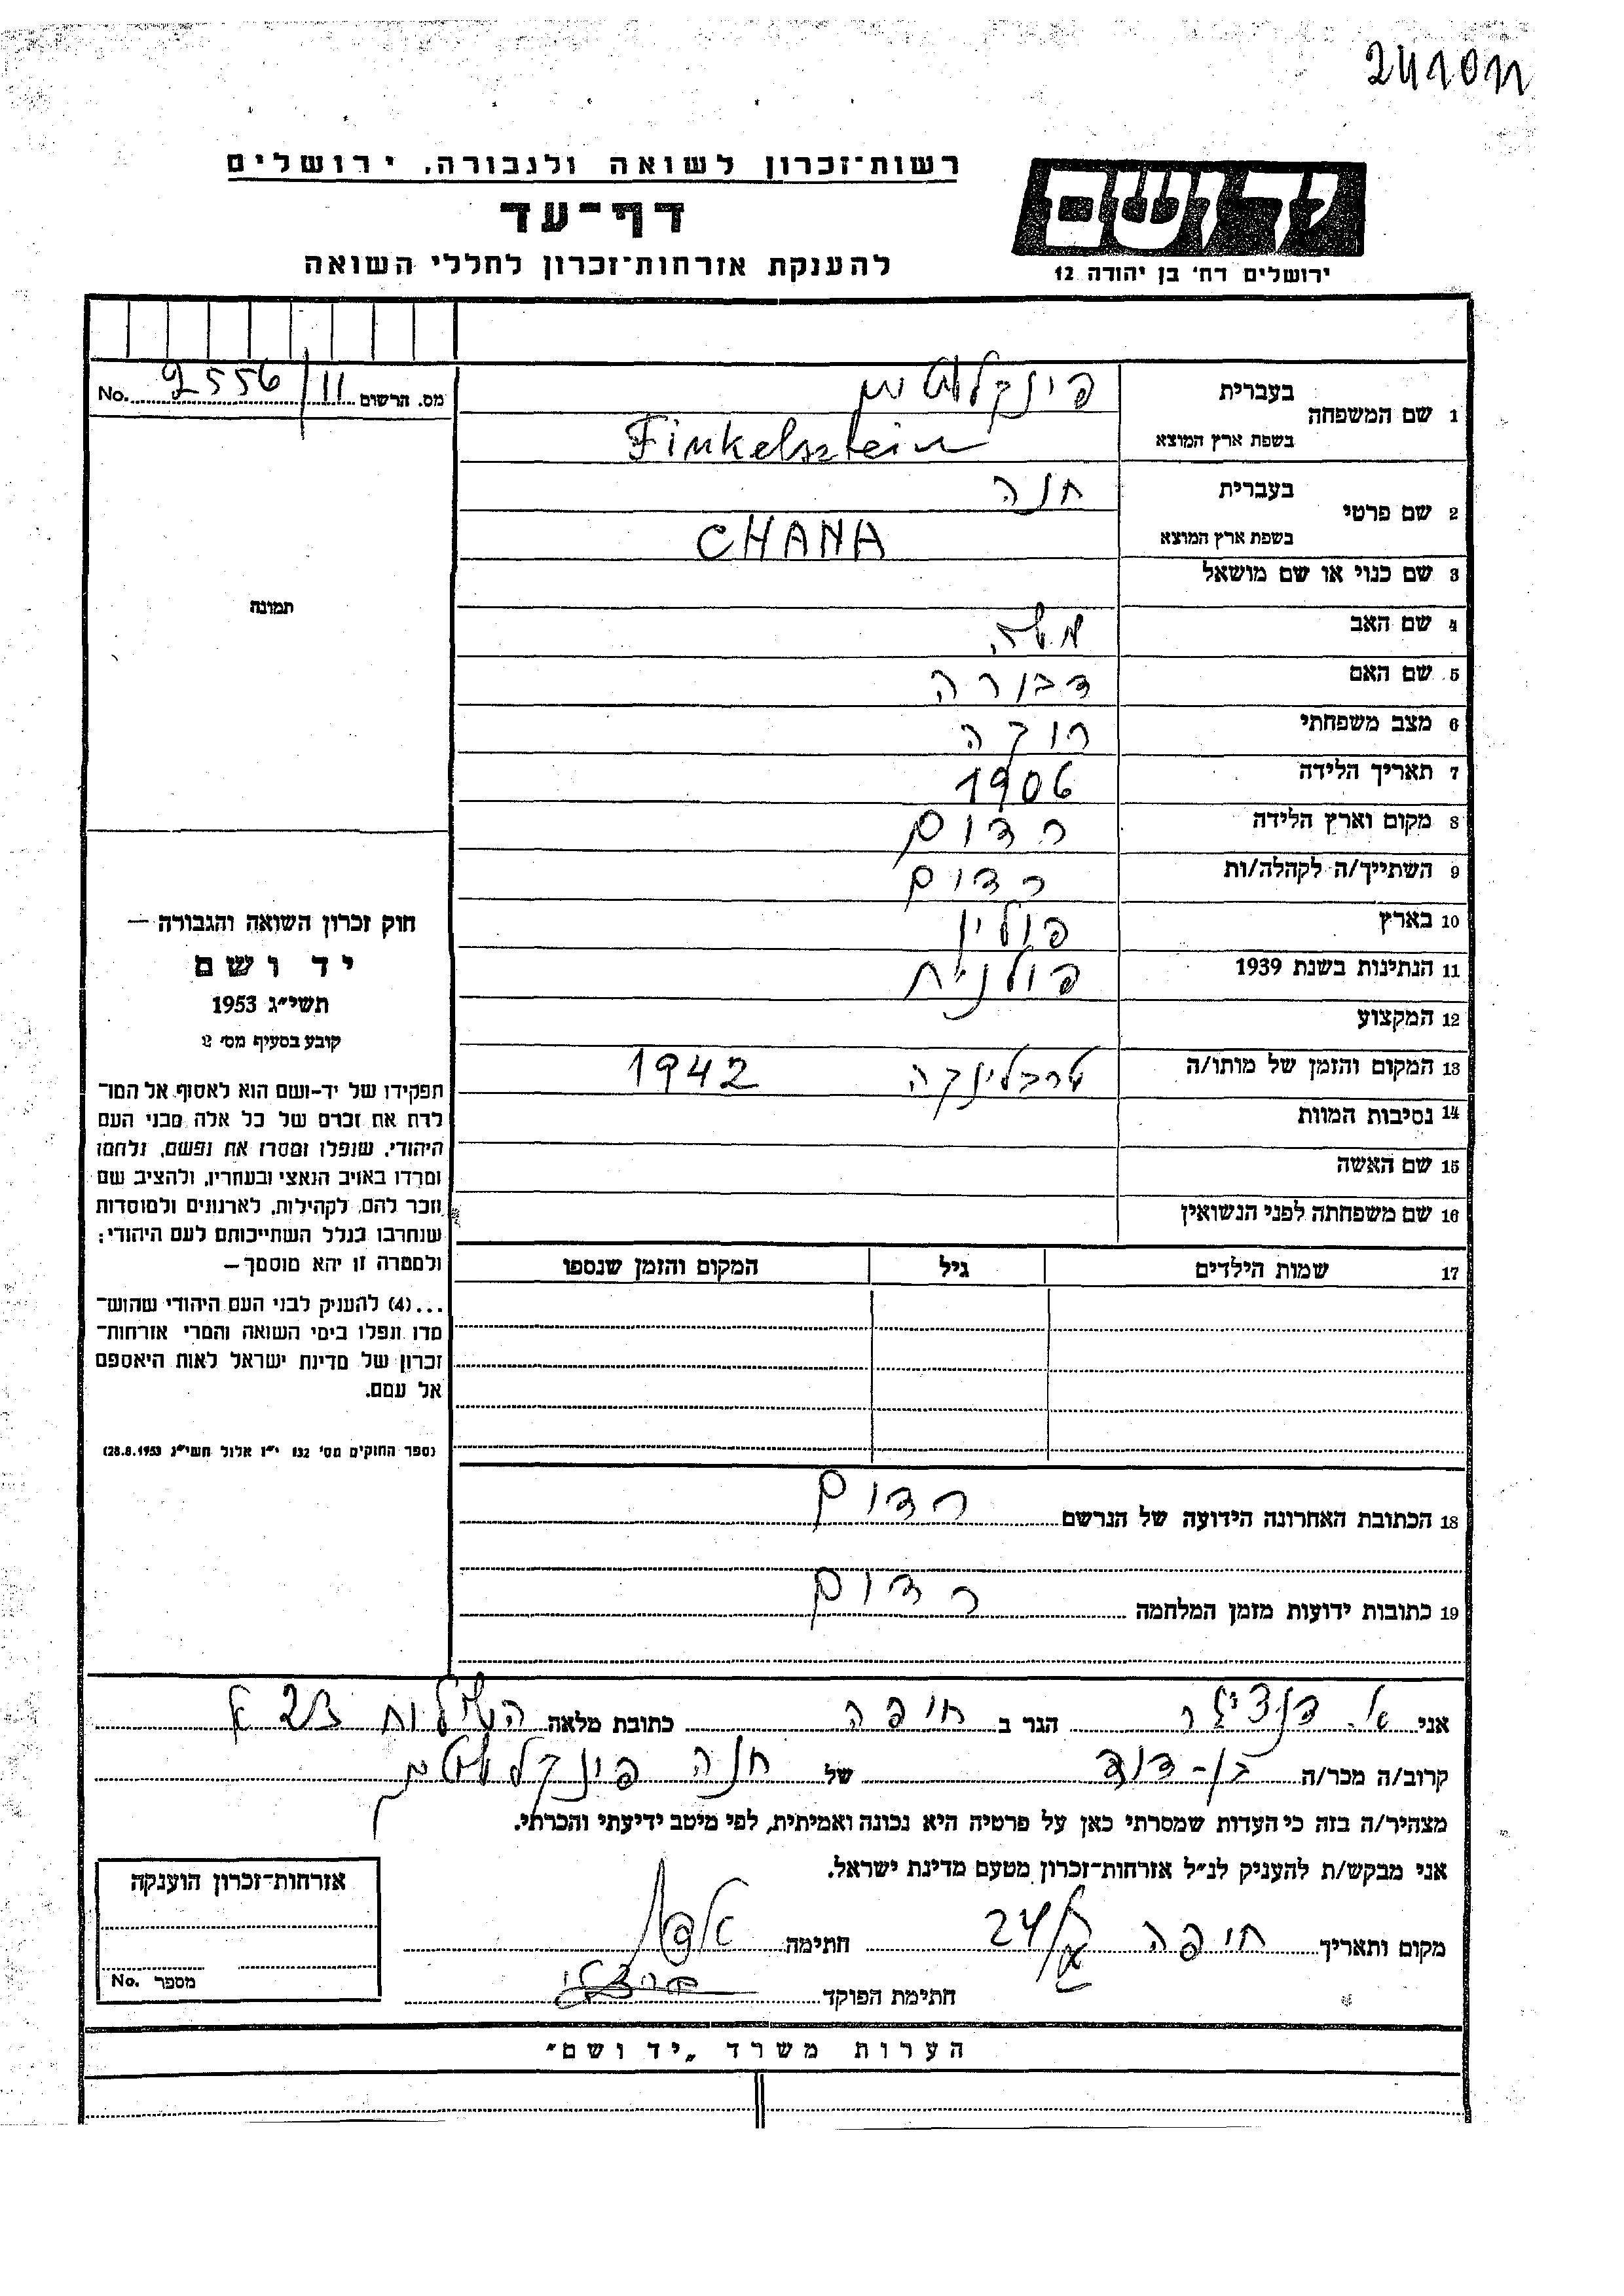 241011
רשות-זכרון לשואה ולגבורה, ירושלים
דף-עד
להענקת אזרחות-זכרון לחללי השואה
יד ושם
ירושלים רח' בן יהודה 12
מס. הרשום 11/2556 No.
1 שם המשפחה
בעברית פינקלשטיין
בשפת ארץ המוצא Finkelsztein
2 שם פרטי
בעברית חנה
בשפת ארץ המוצא CHANA
3 שם כנוי או שם מושאל
4 שם האב משה
5 שם האם דבורה
6 מצב משפחתי רוקה
7 תאריך הלידה 1906
8 מקום וארץ הלידה רדום
9 השתייך/ה לקהלה/ות רדום
10 בארץ פולין
11 הנתינות בשנת 1939 פולנית
12 המקצוע
13 המקום והזמן של מותו/ה טרבלינקה 1942
14 נסיבות המוות
15 שם האשה
16 שם משפחתה לפני הנשואין
17 שמות הילדים גיל המקום והזמן שנספו
18 הכתובת האחרונה הידועה של הנרשם רדום
19 כתובות ידועות מזמן המלחמה רדום
תמונה
חוק זכרון השואה והגבורה —
יד ושם
תשי"ג 1953
קובע בסעיף מס' 2
תפקידו של יד-ושם הוא לאסוף אל המו-
לדת את זכרם של כל אלה מבני העם
היהודי, שנפלו ומסרו את נפשם, נלחמו
ומרדו באויב הנאצי ובעוזריו, ולהציב שם
וזכר להם, לקהילות, לארגונים ולמוסדות
שנחרבו בגלל השתייכותם לעם היהודי;
ולמטרה זו יהא מוסמך —
...(4) להעניק לבני העם היהודי שהוש-
מדו ונפלו בימי השואה והמרי אזרחות-
זכרון של מדינת ישראל לאות היאספם
אל עמם.
(ספר החוקים מס' 132 י"ז אלול תשי"ג 28.8.1953)
אני א. דנציגר הגר ב חיפה כתובת מלאה השילוח 23 א
קרוב/ה מכר/ה בן-דוד של חנה פינקלשטיין
מצהיר/ה בזה כי העדות שמסרתי כאן על פרטיה היא נכונה ואמיתית, לפי מיטב ידיעתי והכרתי.
אני מבקש/ת להעניק לנ"ל אזרחות-זכרון מטעם מדינת ישראל.
מקום ותאריך חיפה 24/ חתימה
חתימת הפוקד
אזרחות-זכרון הוענקה
מספר No.
הערות משרד „יד ושם"